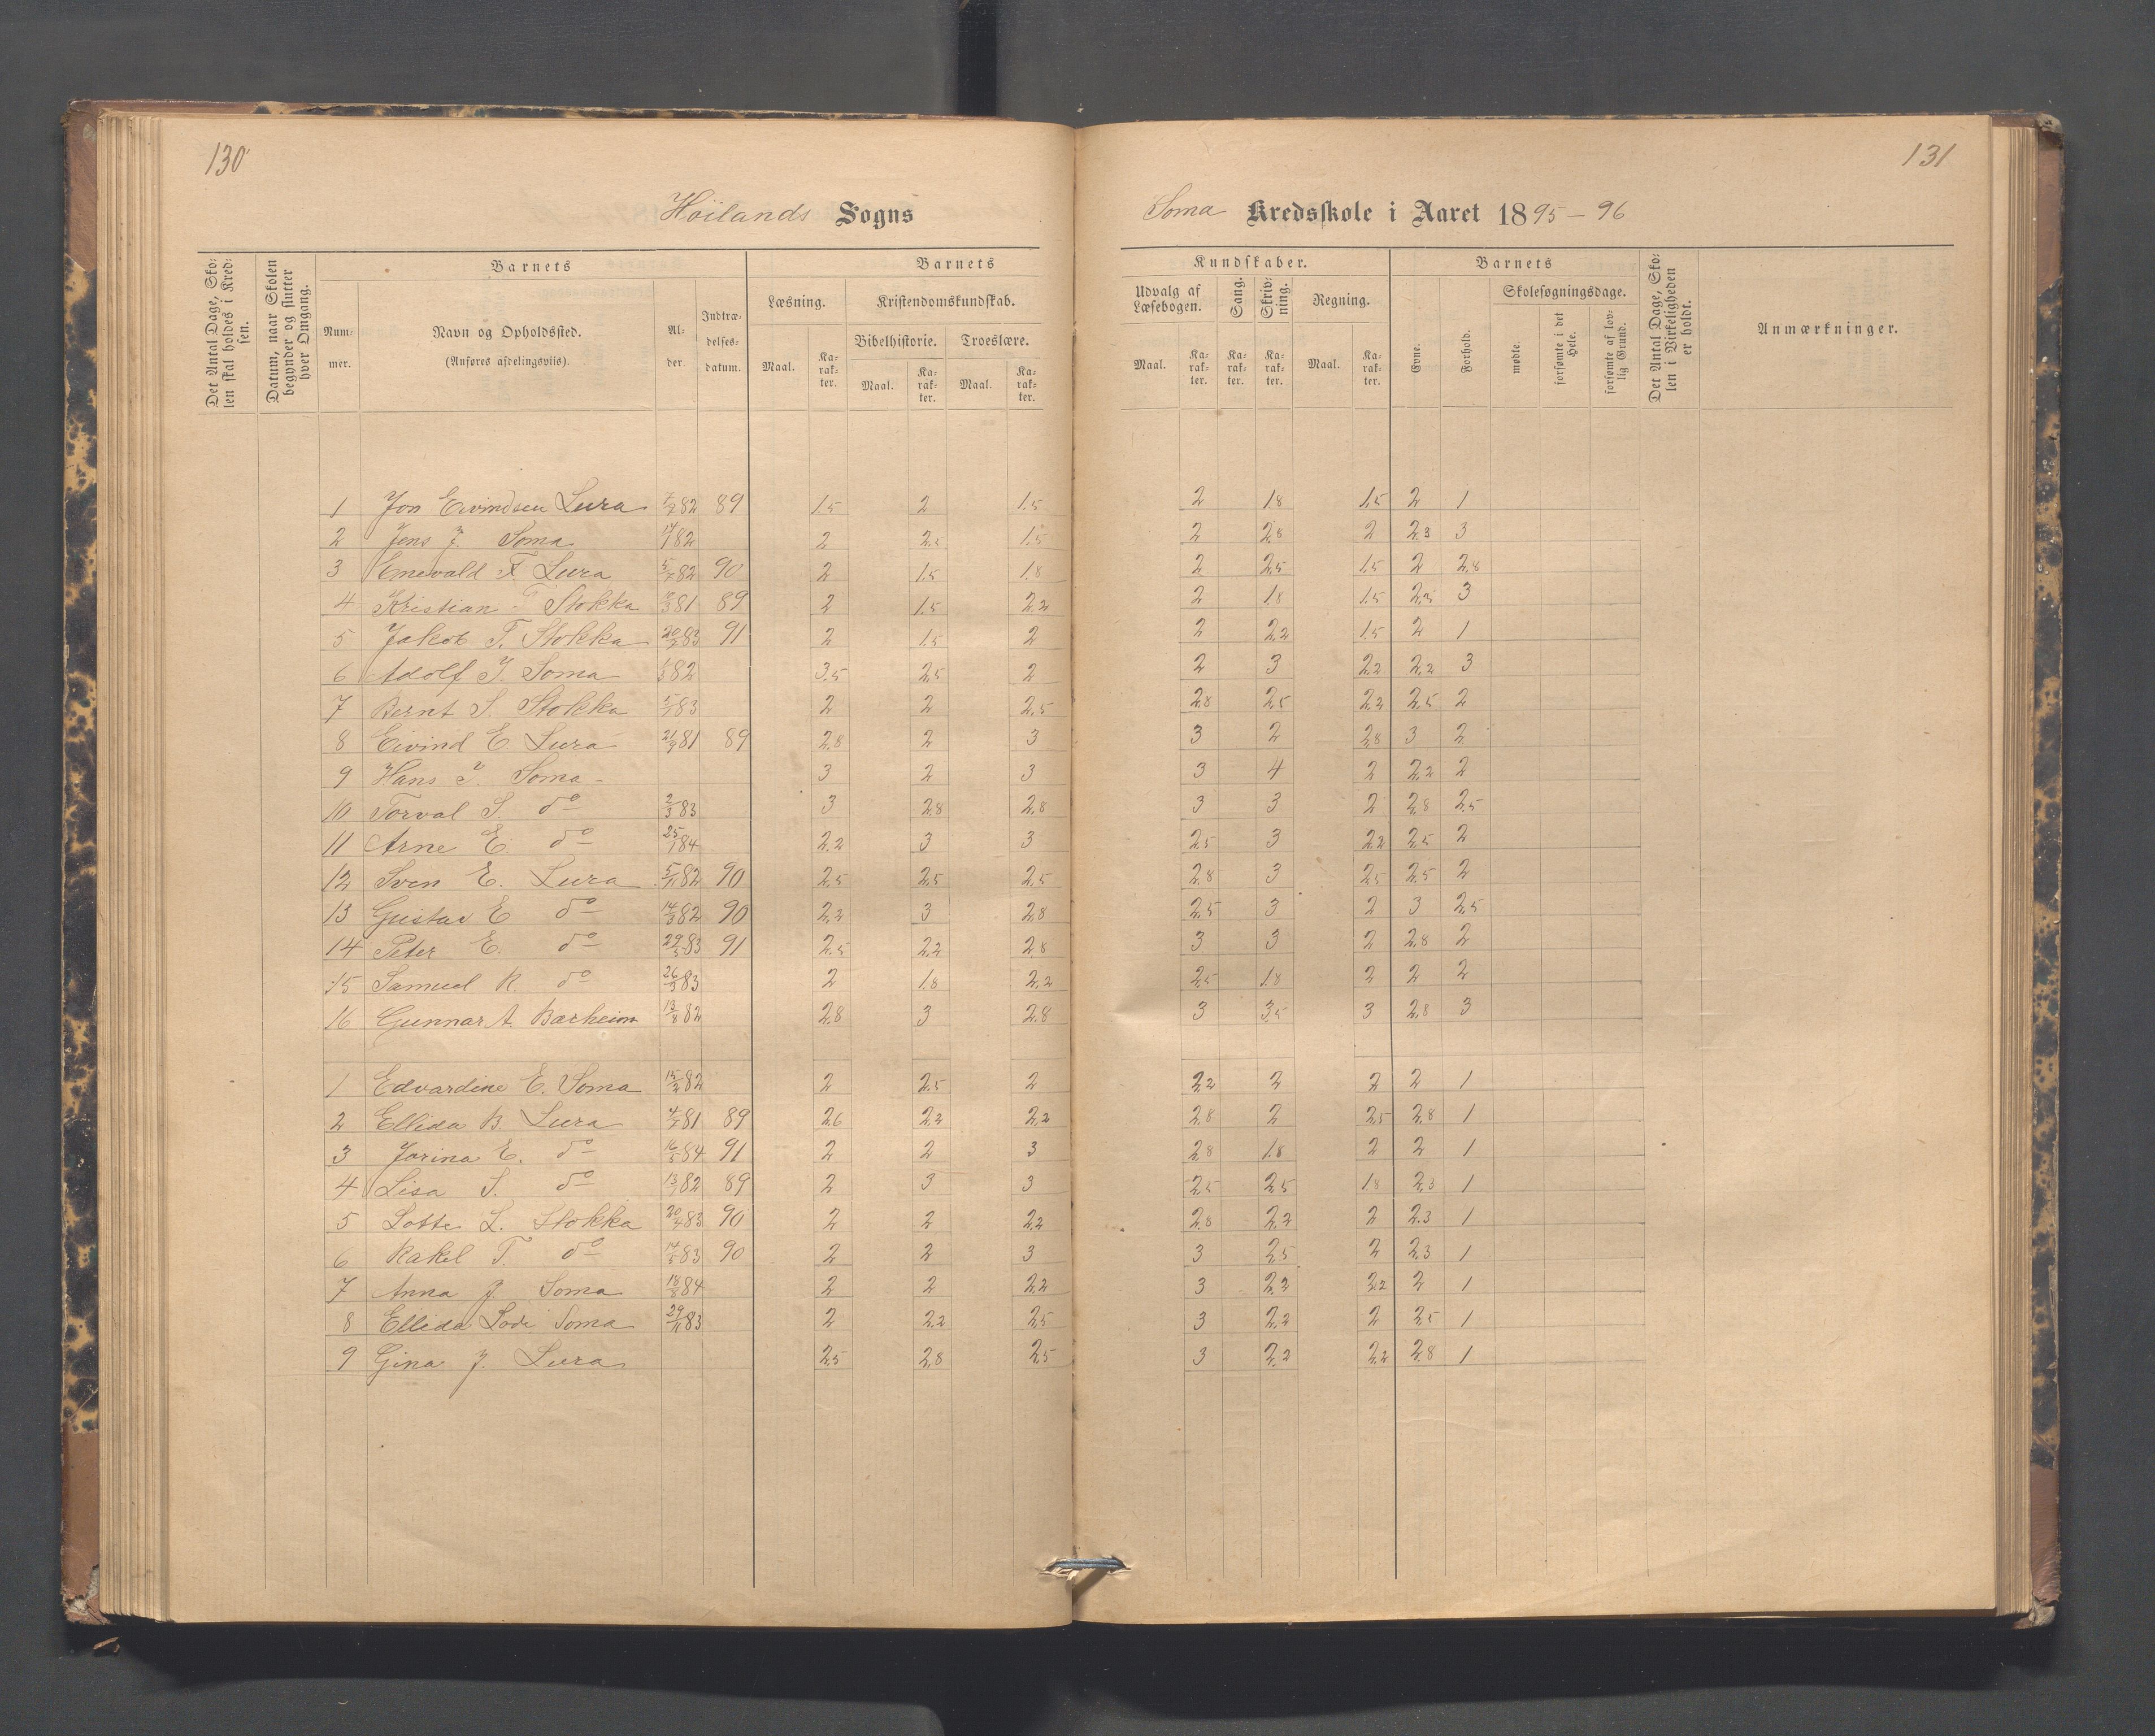 130
131
Höilands Sogns
Soma Kredsskole i Aaret 1895-96
Det Antal Dage, Skolen skal holdes i Kredsen.
Datum, naar Skolen begynder og slutter hver Omgang.
Barnets
Nummer.
Navn og Opholdssted.
(Anføres afdelingsviis).
Alder.
Indtrædelsesdatum.
Barnets
Læsning.
Maal.
Karakter.
Kristendomskundskab.
Bibelhistorie.
Maal.
Karakter.
Troeslære.
Maal.
Karakter.
Kundskaber.
Udvalg af Læsebogen.
Maal.
Karakter.
Sang.
Karakter.
Skrivning.
Karakter.
Regning.
Maal.
Karakter.
Barnets
Evne.
Forhold.
Skolesøgningsdage.
mødte.
forsømte i det Hele.
forsømte af lovlig Grund.
Det Antal Dage, Skolen i Virkeligheden er holdt.
Anmærkninger.
1 Jon Eivindsen Lura 7/7 82 89 1.5 2 1.5 2 1.8 1.5 2 1
2 Jens J. Soma 14/1 82 2 2.5 1.5 2 2.8 2 2.3 3
3 Enevald T. Lura 5/7 82 90 2 1.5 1.8 2 2.5 1.5 2 2.8
4 Kristian Stokka 81 89 2 1.5 2.2 2 1.8 1.5 2.3 3
5 Jakob T. Stokka 83 91 2 1.5 2 2 2.2 1.5 2 1
6 Adolf J. Soma 82 3.5 2.5 2 2 3 2.2 2.2 3
7 Bernt S. Stokka 83 2 2 2.5 2.8 2.5 2.2 2.5 2
8 Eivind E. Lura 21/9 81 89 2.8 2 3 3 2 2.8 3 2
9 Hans J. Soma - 3 2 3 3 4 2 2.2 2
10 Torval S. do 2/3 83 3 2.8 2.8 3 3 2 2.8 2.5
11 Arne E. do 25/1 84 2.2 3 3 2.5 3 2.2 2.5 2
12 Sven E. Lura 5/11 82 90 2.5 2.5 2.5 2.8 3 2.5 2.5 2
13 Gustav E do 14/3 82 90 2.2 3 2.8 2.5 3 2 3 2.5
14 Peter E. do 29/5 83 91 2.5 2.2 2.8 3 3 2 2.8 2
15 Samuel R. do 26/3 83 2 1.8 2.2 2.5 1.8 2 2 2
16 Gunnar A. Barheim 13/8 82 2.8 3 2.8 3 3.5 3 2.8 3
1 Edvardine E. Soma 15/2 82 2 2.5 2 2.2 2 2 2 1
2 Ellida B. Lura 4/7 81 89 2.6 2.2 2.2 2.8 2 2.5 2.8 1
3 Jorina E. do 16/5 84 91 2 2 3 2.8 1.8 2 2 1
4 Lisa S. do 13/1 82 89 2 3 3 2.5 2.5 1.8 2.3 1
5 Lotte L. Stokka 20/4 83 90 2 2 2.2 2.8 2.2 2 2.3 1
6 Rakel T. do 14/5 83 90 2 2 3 3 2.5 2 2.3 1
7 Anna J. Soma 18/8 84 2 2 2.2 3 2.2 2.2 2 1
8 Ellida Lovi Soma 29/11 83 2 2.2 2.5 3 2.2 2 2.5 1
9 Gina J. Lura 2.5 2.8 2.5 3 2.2 2.2 2.8 1